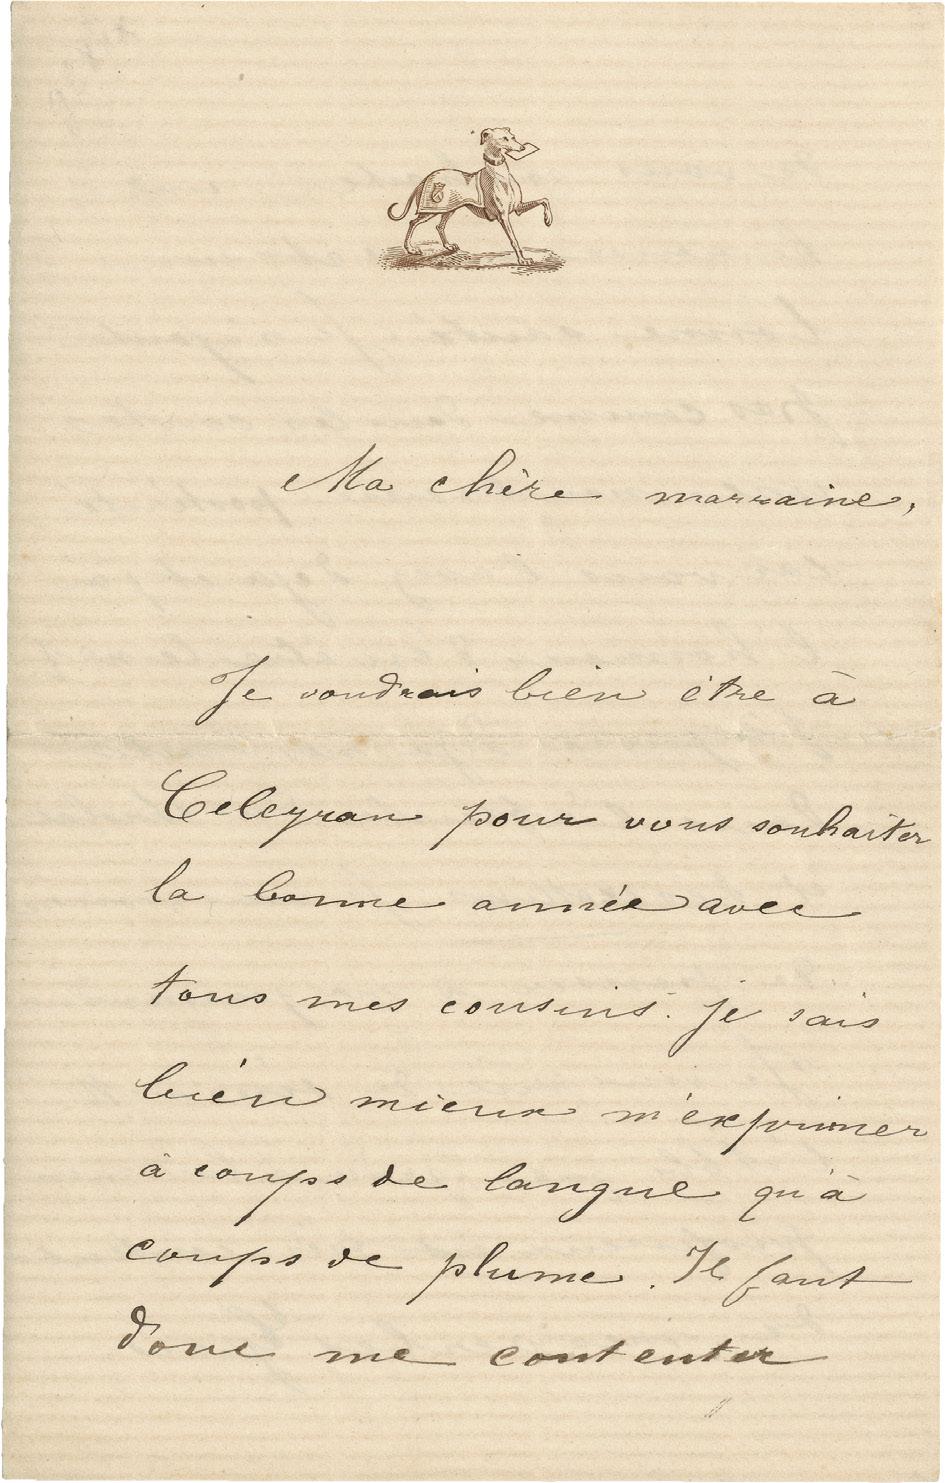 Ma chère marraine,
Je voudrais bien être à
Celeyran pour vous souhaiter
la bonne année avec
tous mes cousins. je sais
bien mieux m'exprimer
à coups de langue qu'à
coups de plume. Il faut
donc me contenter